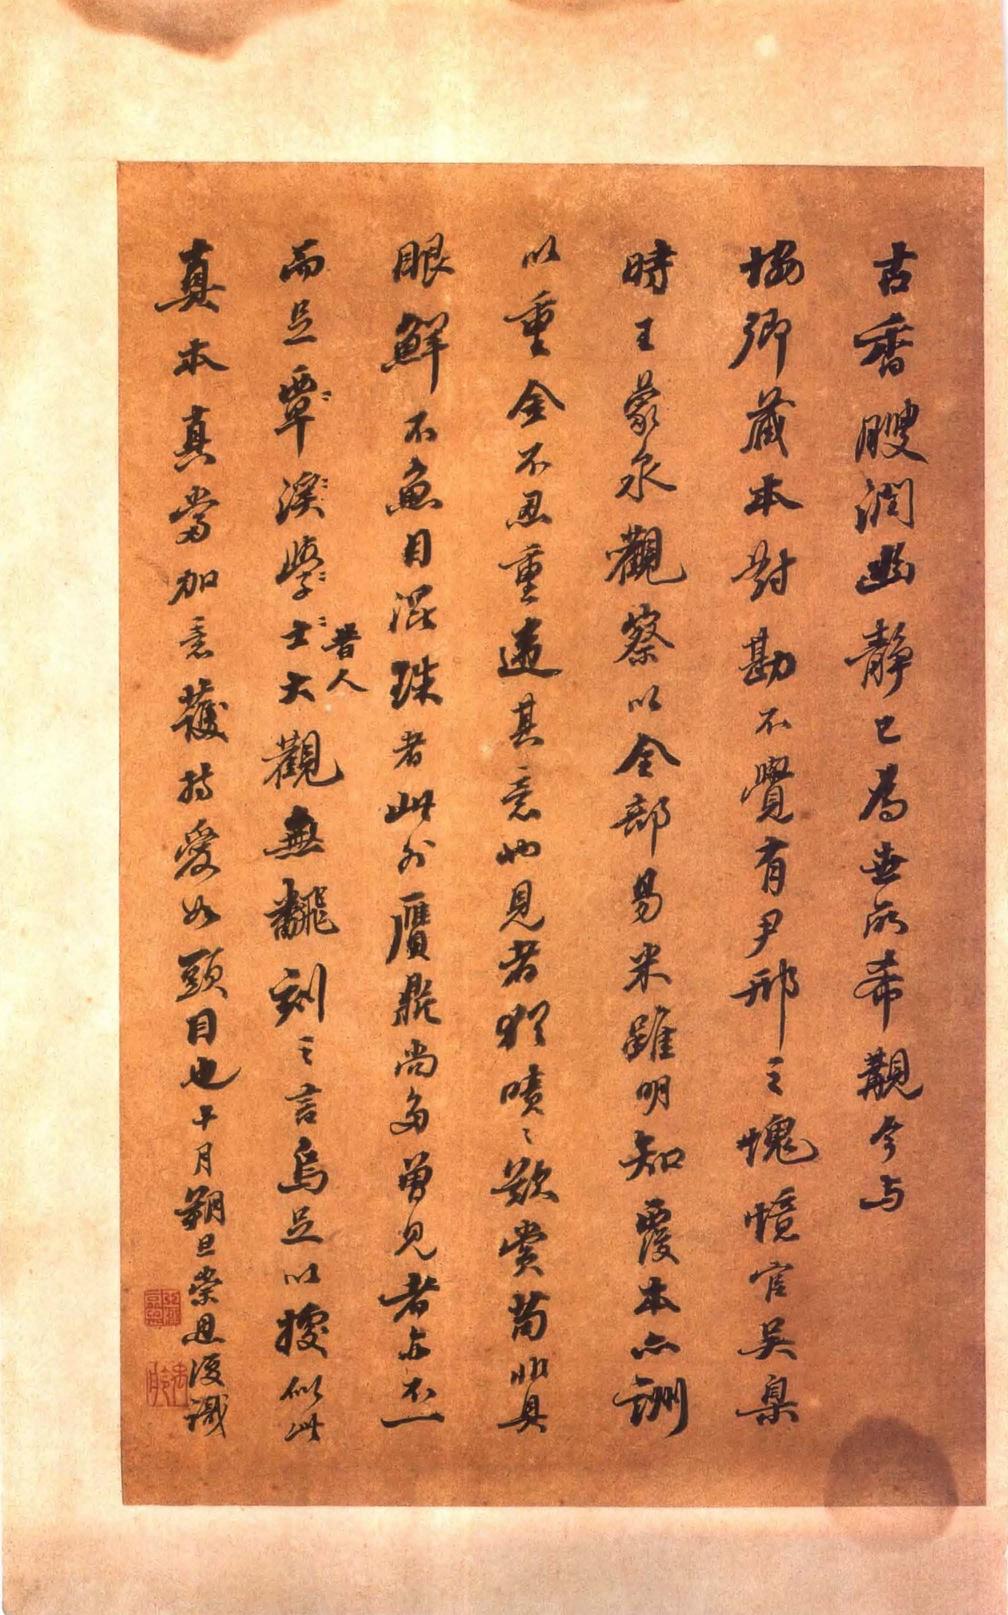 古香腴潤幽靜已為世所希覯今与
梅卿藏本對勘不覺有尹邢之愧憶官吳臬
時王蒙泉觀察以全部易米雖明知覆本亦詶
以重金不忍重違其意也見者猶嘖〻歎賞苟非具
眼鮮不魚目混珠者此外贋鼎尚多曾見者亦不一
而足覃溪學士昔人大觀無飜刻之言烏足以據似此
真本真當加意護持愛如頭目也午月朔旦崇恩復識